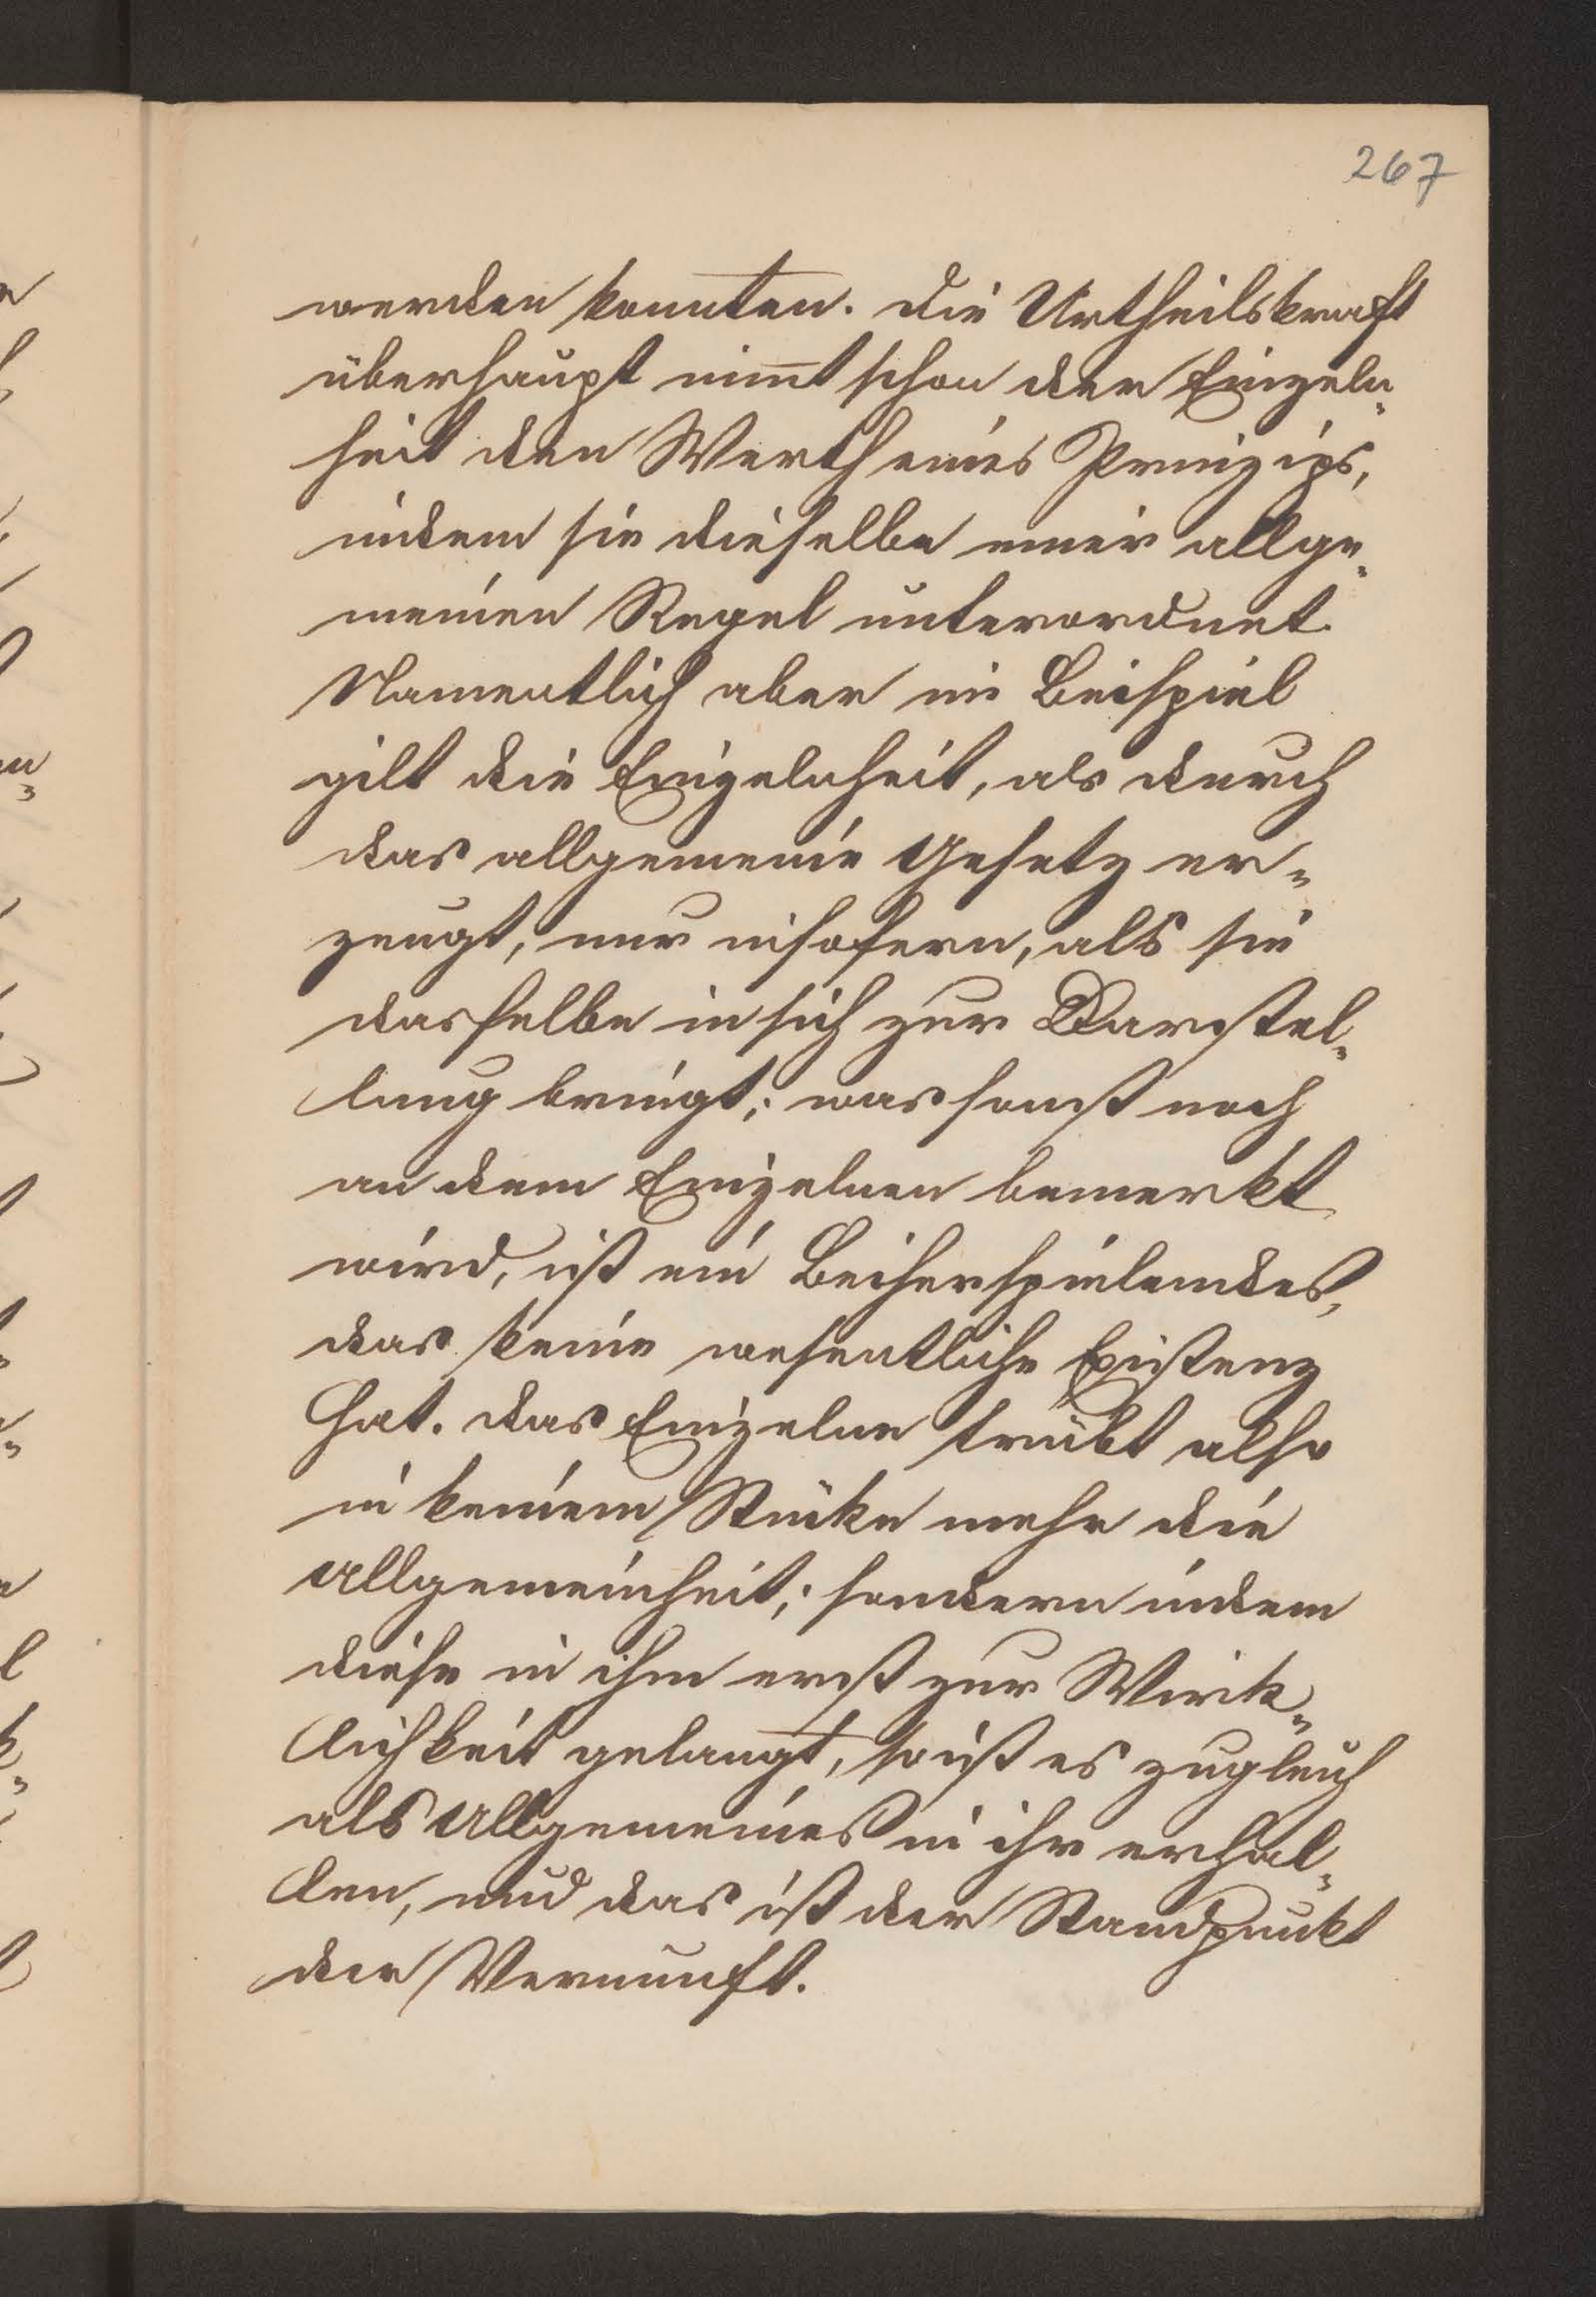 267
werden konnten. Die Urtheilskraft
überhaupt nim̅t schon der Einzeln-
heit den Werth eines Prinzips,
indem sie dieselbe einer allge-
meinen Regel unterordnet.
Namentlich aber im Beispiel
gilt die Einzelnheit, als durch
das allgemeine Gesetz er-
zeugt, nur insofern, als sie
dasselbe in sich zur Darstel-
lung bringt; was sonst noch
an dem Einzelnen bemerkt
wird, ist ein Beiherspielendes,
das keine wesentliche Existenz
hat. Das Einzelne trübt also
in keinem Stücke mehr die
Allgemeinheit; sondern indem
diese in ihm erst zur Wirk-
lichkeit gelangt, so ist es zugleich
als Allgemeines in ihr erhal-
ten, und das ist der Standpunkt
der Vernunft.